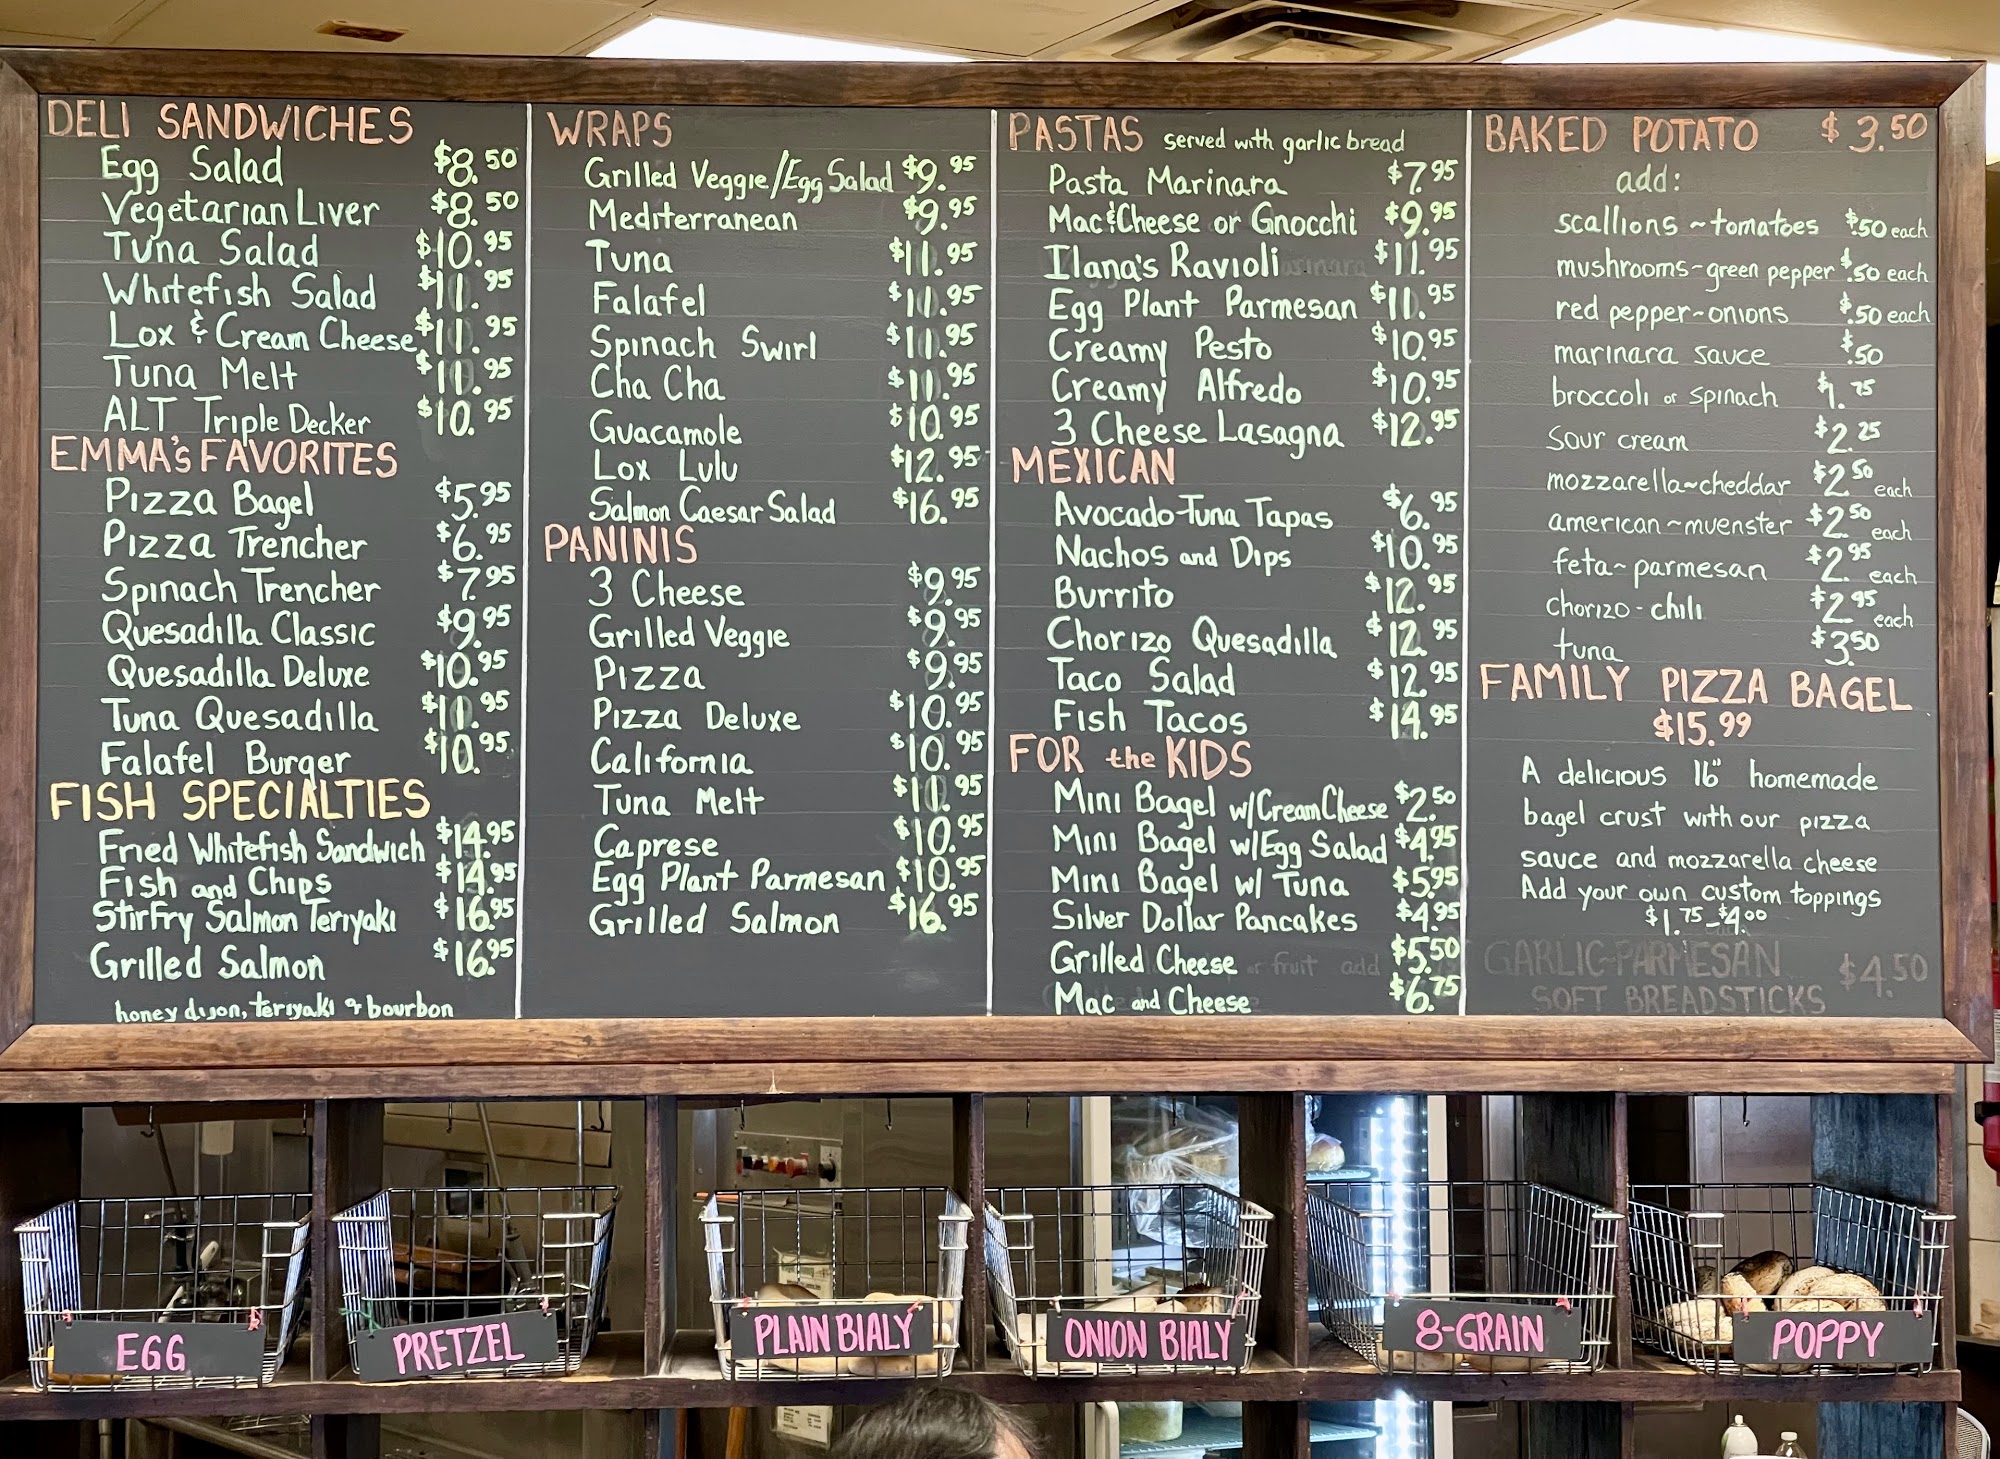 DELI SANDWICHES
Egg Salad $8.50
Vegetarian Liver $8.50
Tuna Salad $10.95
Whitefish Salad $11.95
Lox & Cream Cheese $11.95
Tuna Melt $11.95
ALT Triple Decker $10.95
EMMA's FAVORITES
Pizza Bagel $5.95
Pizza Trencher $6.95
Spinach Trencher $7.95
Quesadilla Classic $9.95
Quesadilla Deluxe $10.95
Tuna Quesadilla $11.95
Falafel Burger $10.95
FISH SPECIALTIES
Fried Whitefish Sandwich $14.95
Fish and Chips $14.95
Stirfry Salmon Teriyaki $16.95
Grilled Salmon $16.95
honey dijon, teriyaki or bourbon
WRAPS
Grilled Veggie/Egg Salad $9.95
Mediterranean $9.95
Tuna $11.95
Falafel $10.95
Spinach Swirl $11.95
Cha Cha $11.95
Guacamole $10.95
Lox Lulu $12.95
Salmon Caesar Salad $16.95
PANINIS
3 Cheese $9.95
Grilled Veggie $9.95
Pizza $9.95
Pizza Deluxe $10.95
California $10.95
Tuna Melt $11.95
Caprese $10.95
Egg Plant Parmesan $10.95
Grilled Salmon $16.95
PASTAS served with garlic bread
Pasta Marinara $7.95
Mac & Cheese or Gnocchi $9.95
Ilana's Ravioli $11.95
Egg Plant Parmesan $11.95
Creamy Pesto $10.95
Creamy Alfredo $10.95
3 Cheese Lasagna $12.95
MEXICAN
Avocado-Tuna Tapas $6.95
Nachos and Dips $10.95
Burrito $12.95
Chorizo Quesadilla $12.95
Taco Salad $12.95
Fish Tacos $14.95
FOR the KIDS
Mini Bagel w/Cream Cheese $2.50
Mini Bagel w/Egg Salad $4.95
Mini Bagel w/ Tuna $5.95
Silver Dollar Pancakes $4.95
Grilled Cheese or fruit add $5.50
Mac and Cheese $6.75
BAKED POTATO $3.50
add:
scallions ~ tomatoes $.50 each
mushrooms - green pepper $.50 each
red pepper ~ onions $.50 each
marinara sauce $.50
broccoli or spinach $1.75
sour cream $2.25
mozzarella ~ cheddar $2.50 each
american ~ muenster $2.50 each
feta ~ parmesan $2.95 each
chorizo - chili $2.95 each
tuna $3.50
FAMILY PIZZA BAGEL
$15.99
A delicious 16" homemade
bagel crust with our pizza
sauce and mozzarella cheese
Add your own custom toppings
$1.75 - $4.00
GARLIC~PARMESAN
SOFT BREADSTICKS $4.50
EGG
PRETZEL
PLAIN BIALY
ONION BIALY
8-GRAIN
POPPY